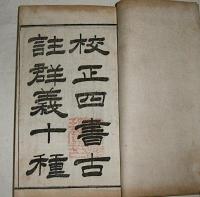 校正四書古
註群義十種